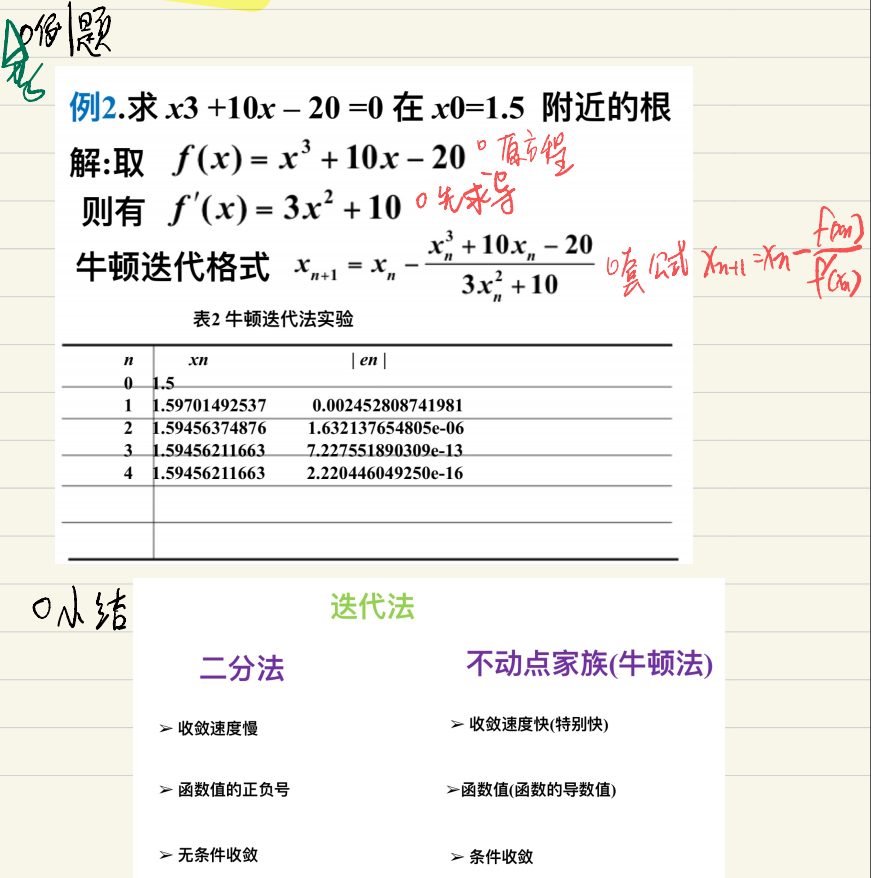 例题
例2.求 x3 +10x – 20 =0 在 x0=1.5 附近的根
解:取 f(x) = x³ + 10x – 20 原方程
则有 f′(x) = 3x² + 10 先求导
牛顿迭代格式 xₙ₊₁ = xₙ – (xₙ³ + 10xₙ – 20)/(3xₙ² + 10) 套公式 xₙ₊₁ = xₙ – f(xₙ)/f′(xₙ)
表2 牛顿迭代法实验
n xn | en |
0 1.5
1 1.59701492537 0.002452808741981
2 1.59456374876 1.632137654805e-06
3 1.59456211663 7.227551890309e-13
4 1.59456211663 2.220446049250e-16
小结
迭代法
二分法 不动点家族(牛顿法)
➢ 收敛速度慢 ➢ 收敛速度快(特别快)
➢ 函数值的正负号 ➢函数值(函数的导数值)
➢ 无条件收敛 ➢ 条件收敛